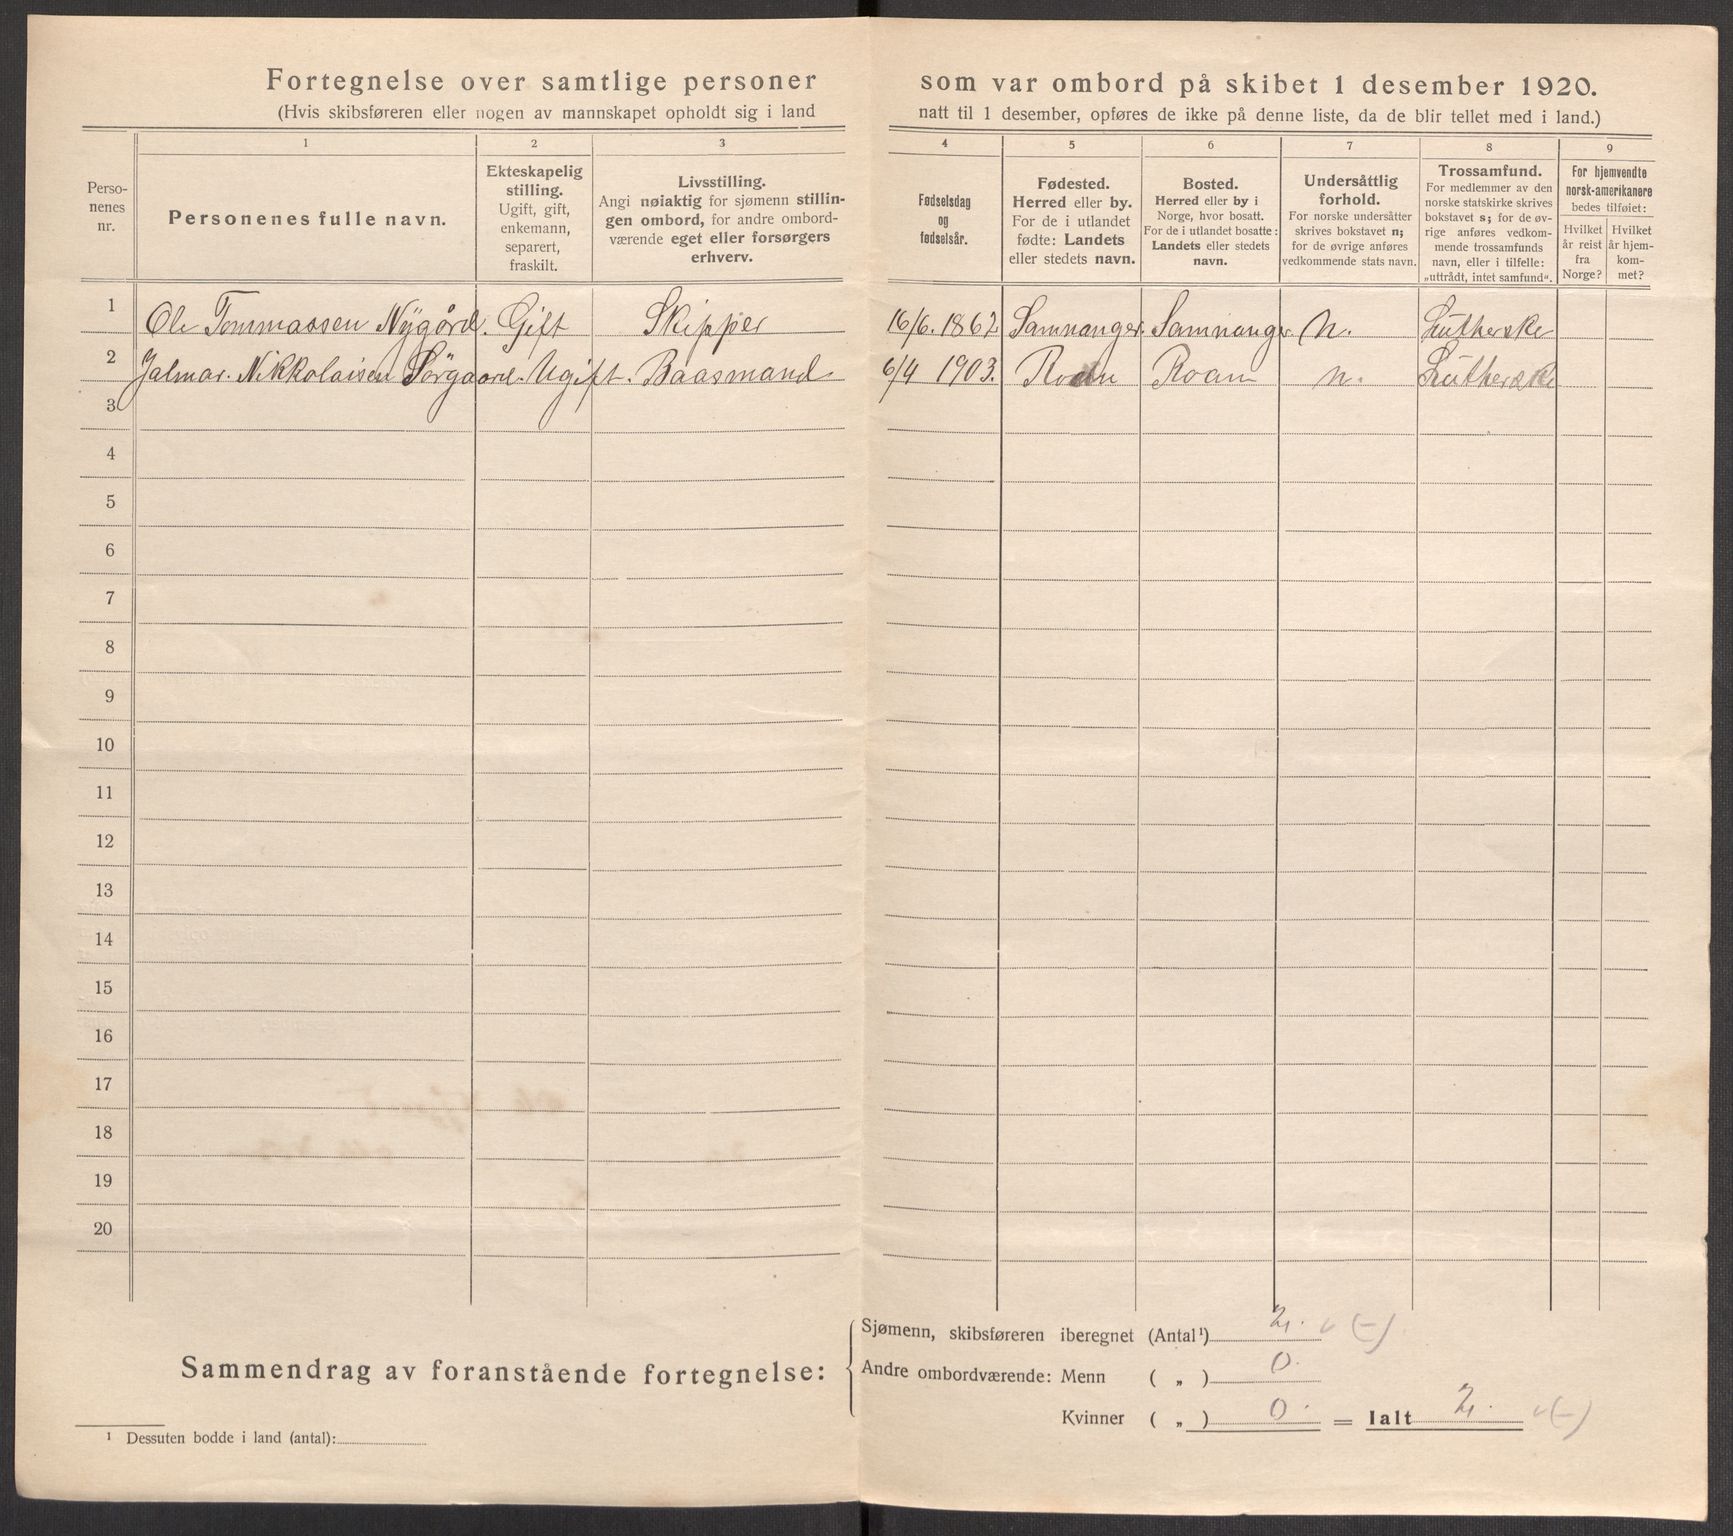 Fortegnelse over samtlige personer som var ombord på skibet 1 desember 1920.
(Hvis skibsføreren eller nogen av mannskapet opholdt sig i land natt til 1 desember, opføres de ikke på denne liste, da de blir tellet med i land.)
Perso-
nenes
nr.
1
Personenes fulle navn.
2
Ekteskapelig
stilling.
Ugift, gift,
enkemann,
separert,
fraskilt.
3
Livsstilling.
Angi nøiaktig for sjømenn stillin-
gen ombord, for andre ombord-
værende eget eller forsørgers
erhverv.
4
Fødselsdag
og
fødselsår.
5
Fødested.
Herred eller by.
For de i utlandet
fødte: Landets
eller stedets navn.
6
Bosted.
Herred eller by i
Norge, hvor bosatt.
For de i utlandet bosatte:
Landets eller stedets
navn.
7
Undersåttlig
forhold.
For norske undersåtter
skrives bokstavet n;
for de øvrige anføres
vedkommende stats navn.
8
Trossamfund.
For medlemmer av den
norske statskirke skrives
bokstavet s; for de øv-
rige anføres vedkom-
mende trossamfunds
navn, eller i tilfelle:
„uttrådt, intet samfund“.
9
For hjemvendte
norsk-amerikanere
bedes tilføiet:
Hvilket
år reist
fra
Norge?
Hvilket
år hjem-
kom-
met?
1 Ole Tommassen Nÿgård. Gift Skipper 16/6. 1862 Samnanger. Samnanger. n. Lutherske
2 Jalmar. Nikkolaisen Sörgaard. Ugift. Baasmand 6/4 1903. Roan Roan n. Lutherske
3
4
5
6
7
8
9
10
11
12
13
14
15
16
17
18
19
20
Sammendrag av foranstående fortegnelse:
Sjømenn, skibsføreren iberegnet (Antal¹) 2. v (-)
Andre ombordværende: Menn ( „ ) 0.
Kvinner ( „ ) 0. = Ialt 2. v(-)
¹ Dessuten bodde i land (antal):